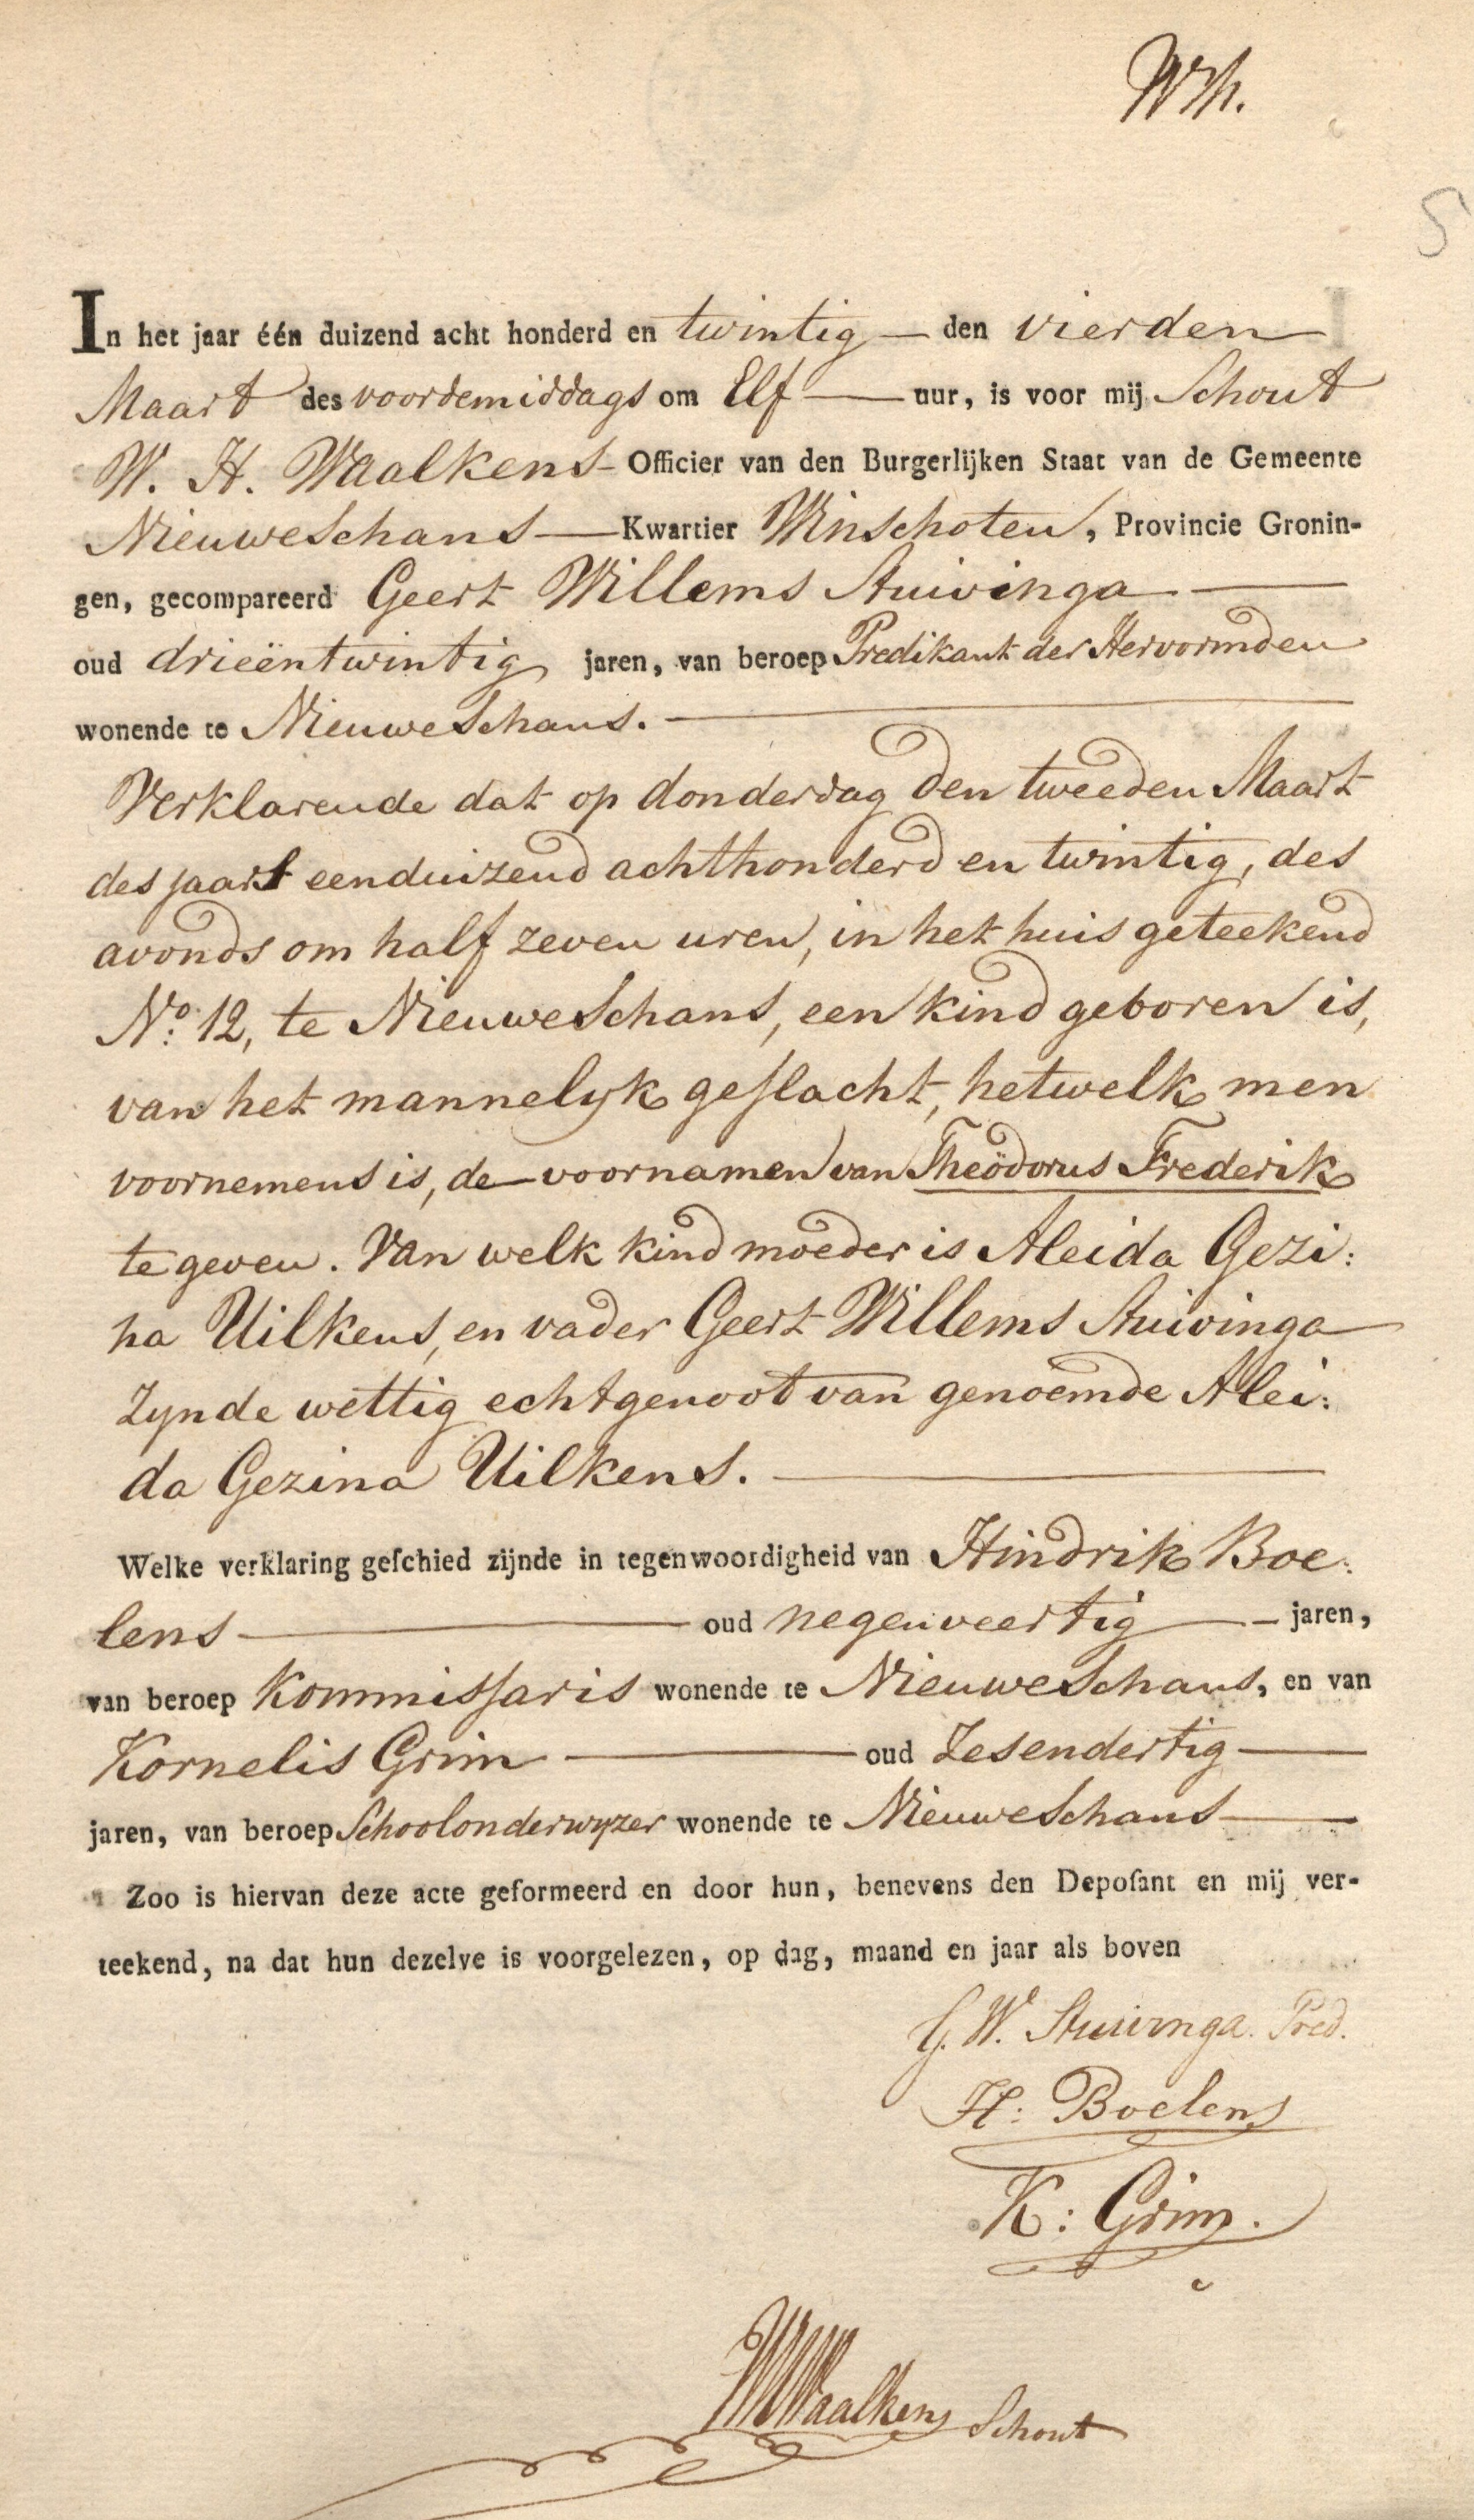 Wh.
5
In het jaar één duizend acht honderd en twintig — den vierden
Maart des voordemiddags om Elf — uur, is voor mij Schout
W. H. Waalkens - Officier van den Burgerlijken Staat van de Gemeente
NieuweSchans — Kwartier Winschoten, Provincie Gronin-
gen, gecompareerd Geert Willems Stuivinga —
oud drieëntwintig jaren, van beroep Predikant der Hervormden
wonende te NieuweSchans. —
Verklarende dat op donderdag den tweeden Maart
des jaars eenduizend achthonderd en twintig, des
avonds om half zeven uren, in het huis geteekend
No. 12, te NieuweSchans, een kind geboren is,
van het mannelyk geslacht, hetwelk men
voornemens is, de voornamen van Theödorus Frederik
te geven. Van welk kind moeder is Aleida Gezi:
na Uilkens, en vader Geert Willems Stuivinga
Zynde wettig echtgenoot van genoemde Alei:
da Gezina Uilkens. —
Welke verklaring geſchied zijnde in tegenwoordigheid van Hindrik Boe:
lens — oud negenveertig — jaren,
van beroep Kommisſaris wonende te NieuweSchans, en van
Kornelis Grim — oud Zesendertig —
jaren, van beroep Schoolonderwyzer wonende te NieuweSchans —
Zoo is hiervan deze acte geformeerd en door hun, benevens den Depoſant en mij ver-
teekend, na dat hun dezelve is voorgelezen, op dag, maand en jaar als boven
G. W. Stuivinga. Pred.
H: Boelens
K: Grim.
WHWaalkens Schout